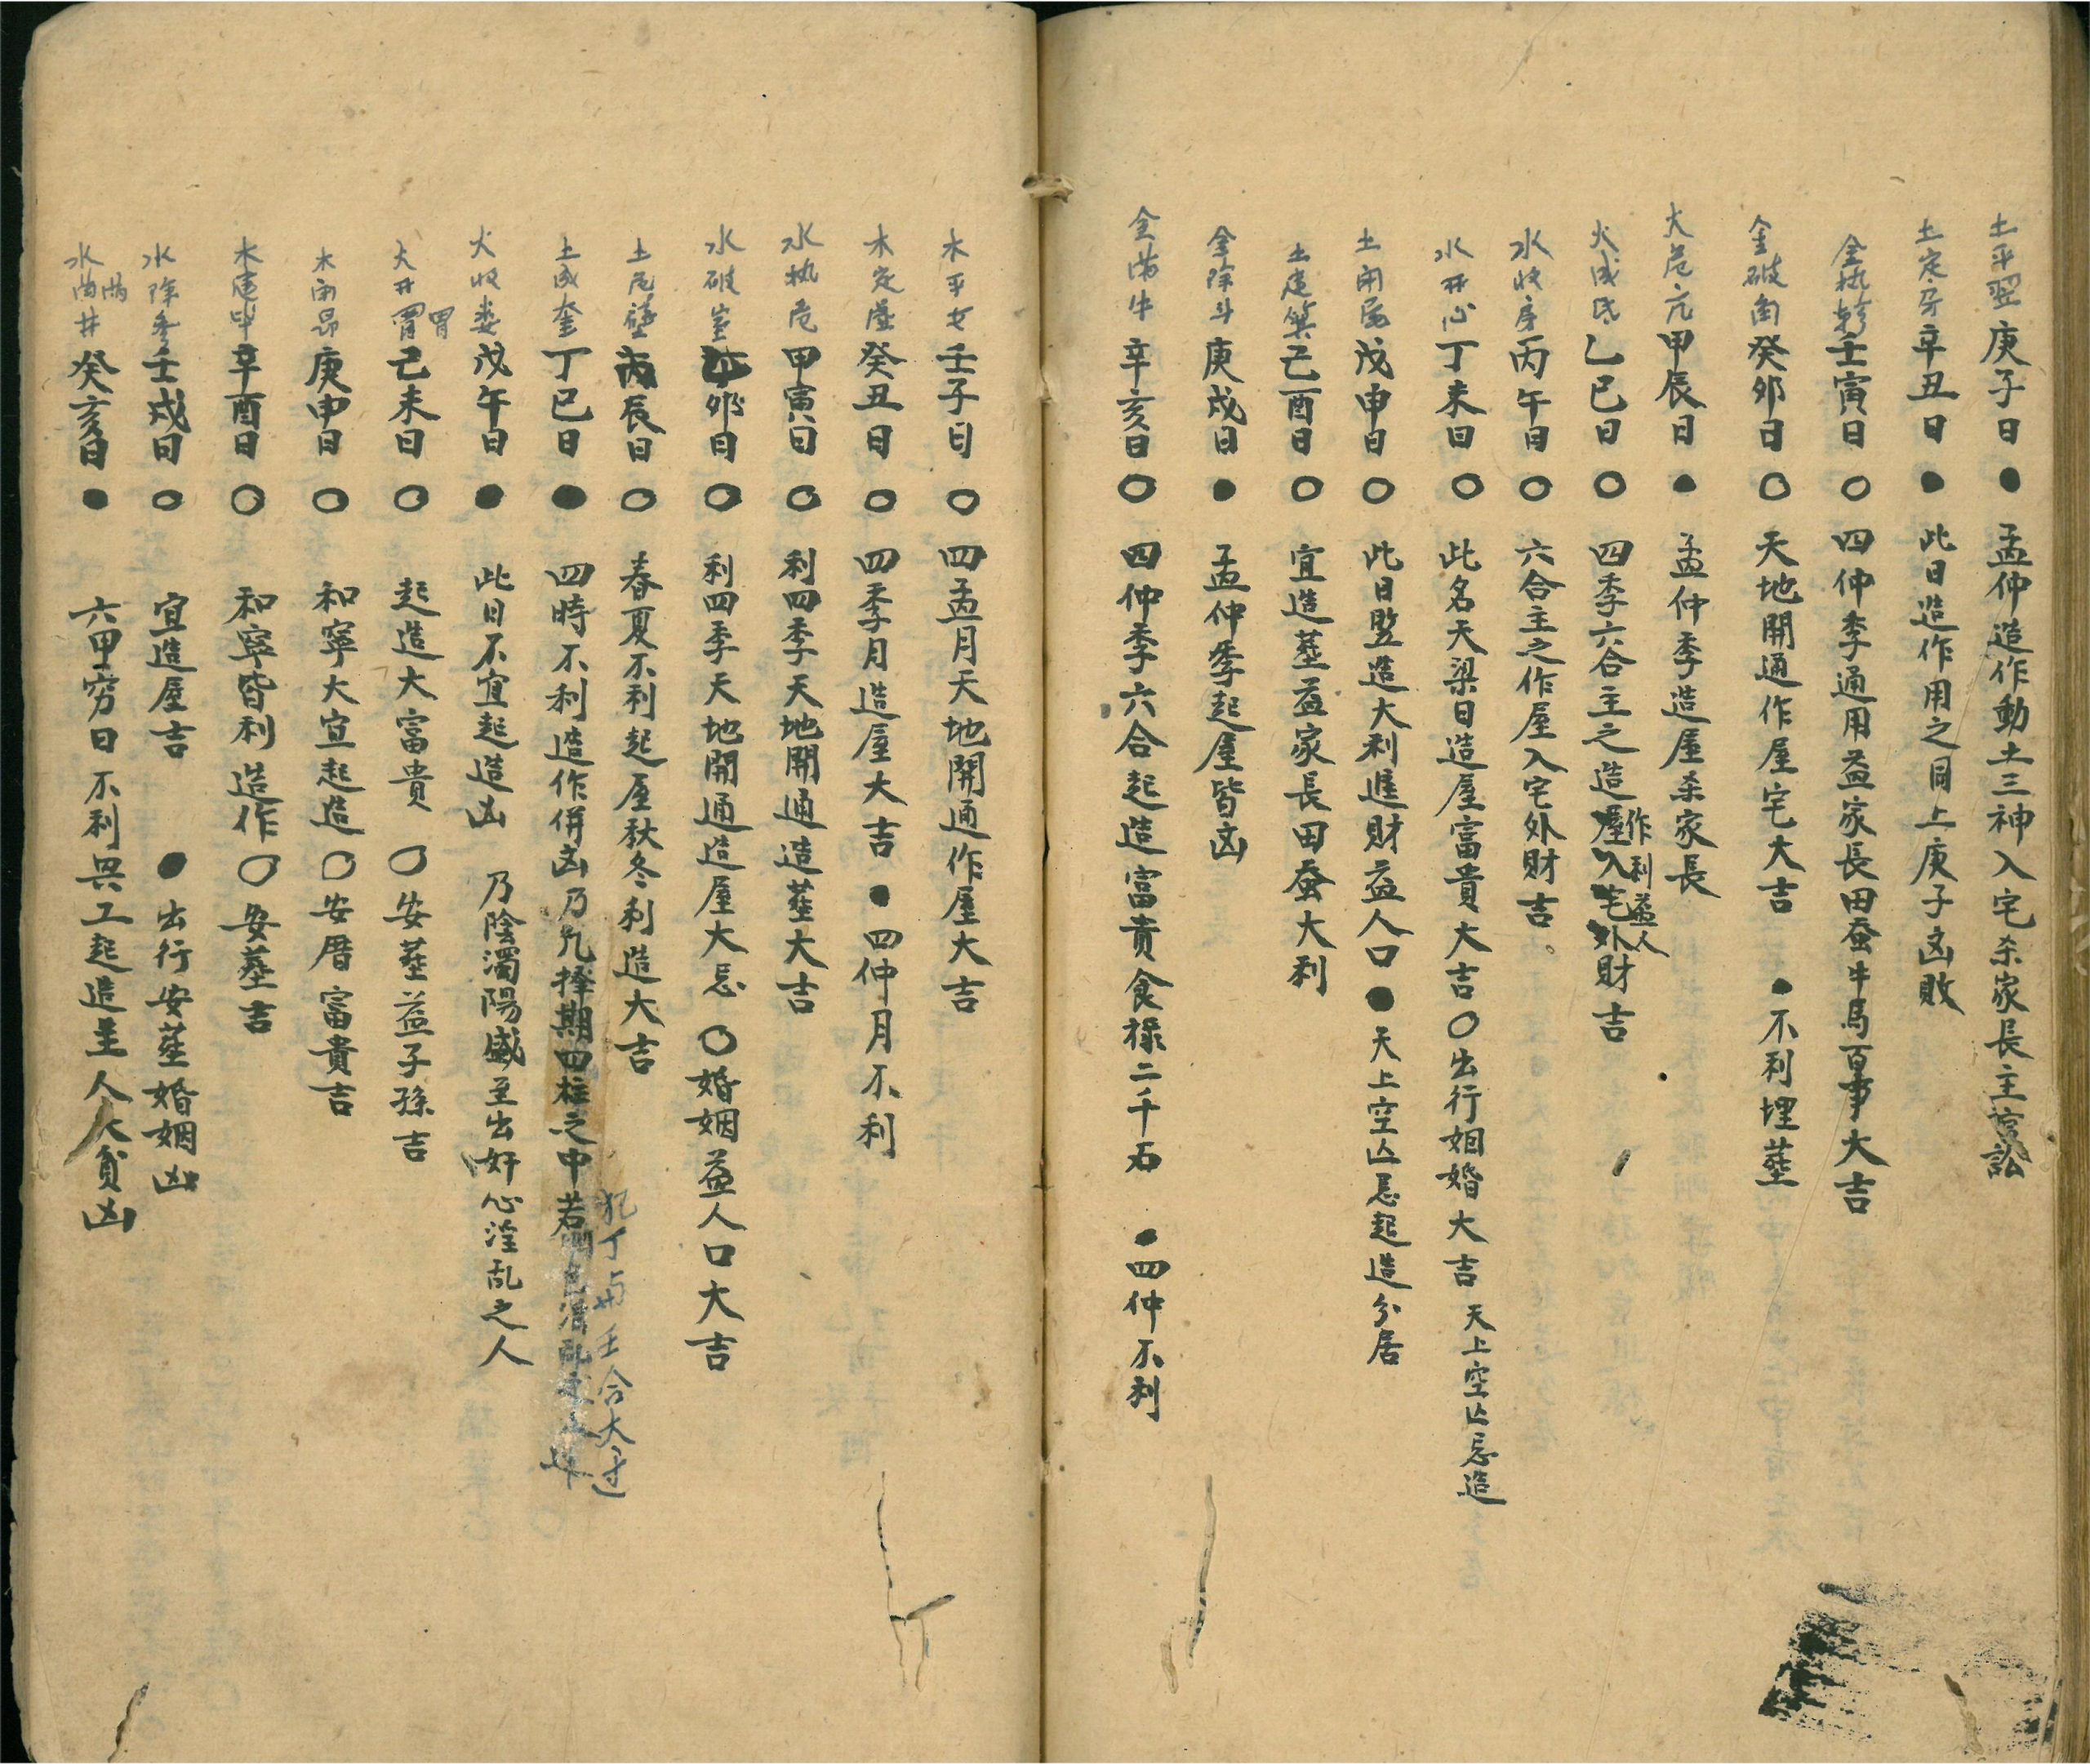 土平翌庚子日●孟仲造作動土三神入宅杀家長主官訟
土定牙辛丑日●此日造作用之同上庚子凶敗
金執軫壬寅日○四仲季通用益家長田蚕牛馬百事大吉
金破角癸卯日○天地開通作屋宅大吉●不利埋塟
火危亢甲辰日●孟仲季造屋杀家長
火成氐乙巳日○四季六合主之造屋入宅外財吉
作利益人
水收房丙午日○六合主之作屋入宅外財吉。
水开心丁未日○此名天梁日造屋富貴大吉○出行姻婚大吉天上空亡忌造
土闭尾戊申日○此日豎造大利進財益人口●天上空亡忌起造分居
土建箕己酉日○宜造塟益家長田蚕大利
金除斗庚戌日●孟仲季起屋皆凶
金满牛辛亥日○四仲季六合起造富貴食祿二千石●四仲不利
木平女壬子日○四孟月天地開通作屋大吉
木定虚癸丑日○四季月造屋大吉●四仲月不利
水执危甲寅日○利四季天地開通造塟大吉
水破室乙卯日○利四季天地開通造屋大忌○婚姻益人口大吉
土危壁丙辰日○春夏不利起屋秋冬利造大吉
土成奎丁巳日●四時不利造作併凶乃凢择期四柱之中若
犯丁与壬合大过
火收娄戊午日●此日不宜起造凶乃陰濁陽盛至出奸心淫乱之人
火开胃己未日○起造大富貴○安塟益子孫吉
胃
木闭昴庚申日○和寧大宜起造○安厝富貴吉
木建毕辛酉日○和寧皆利造作○安塟吉
水除参壬戌日○宜造屋吉●出行安塟婚姻凶
水满井癸亥日●六甲穷日不利兴工起造主人大貧凶
满